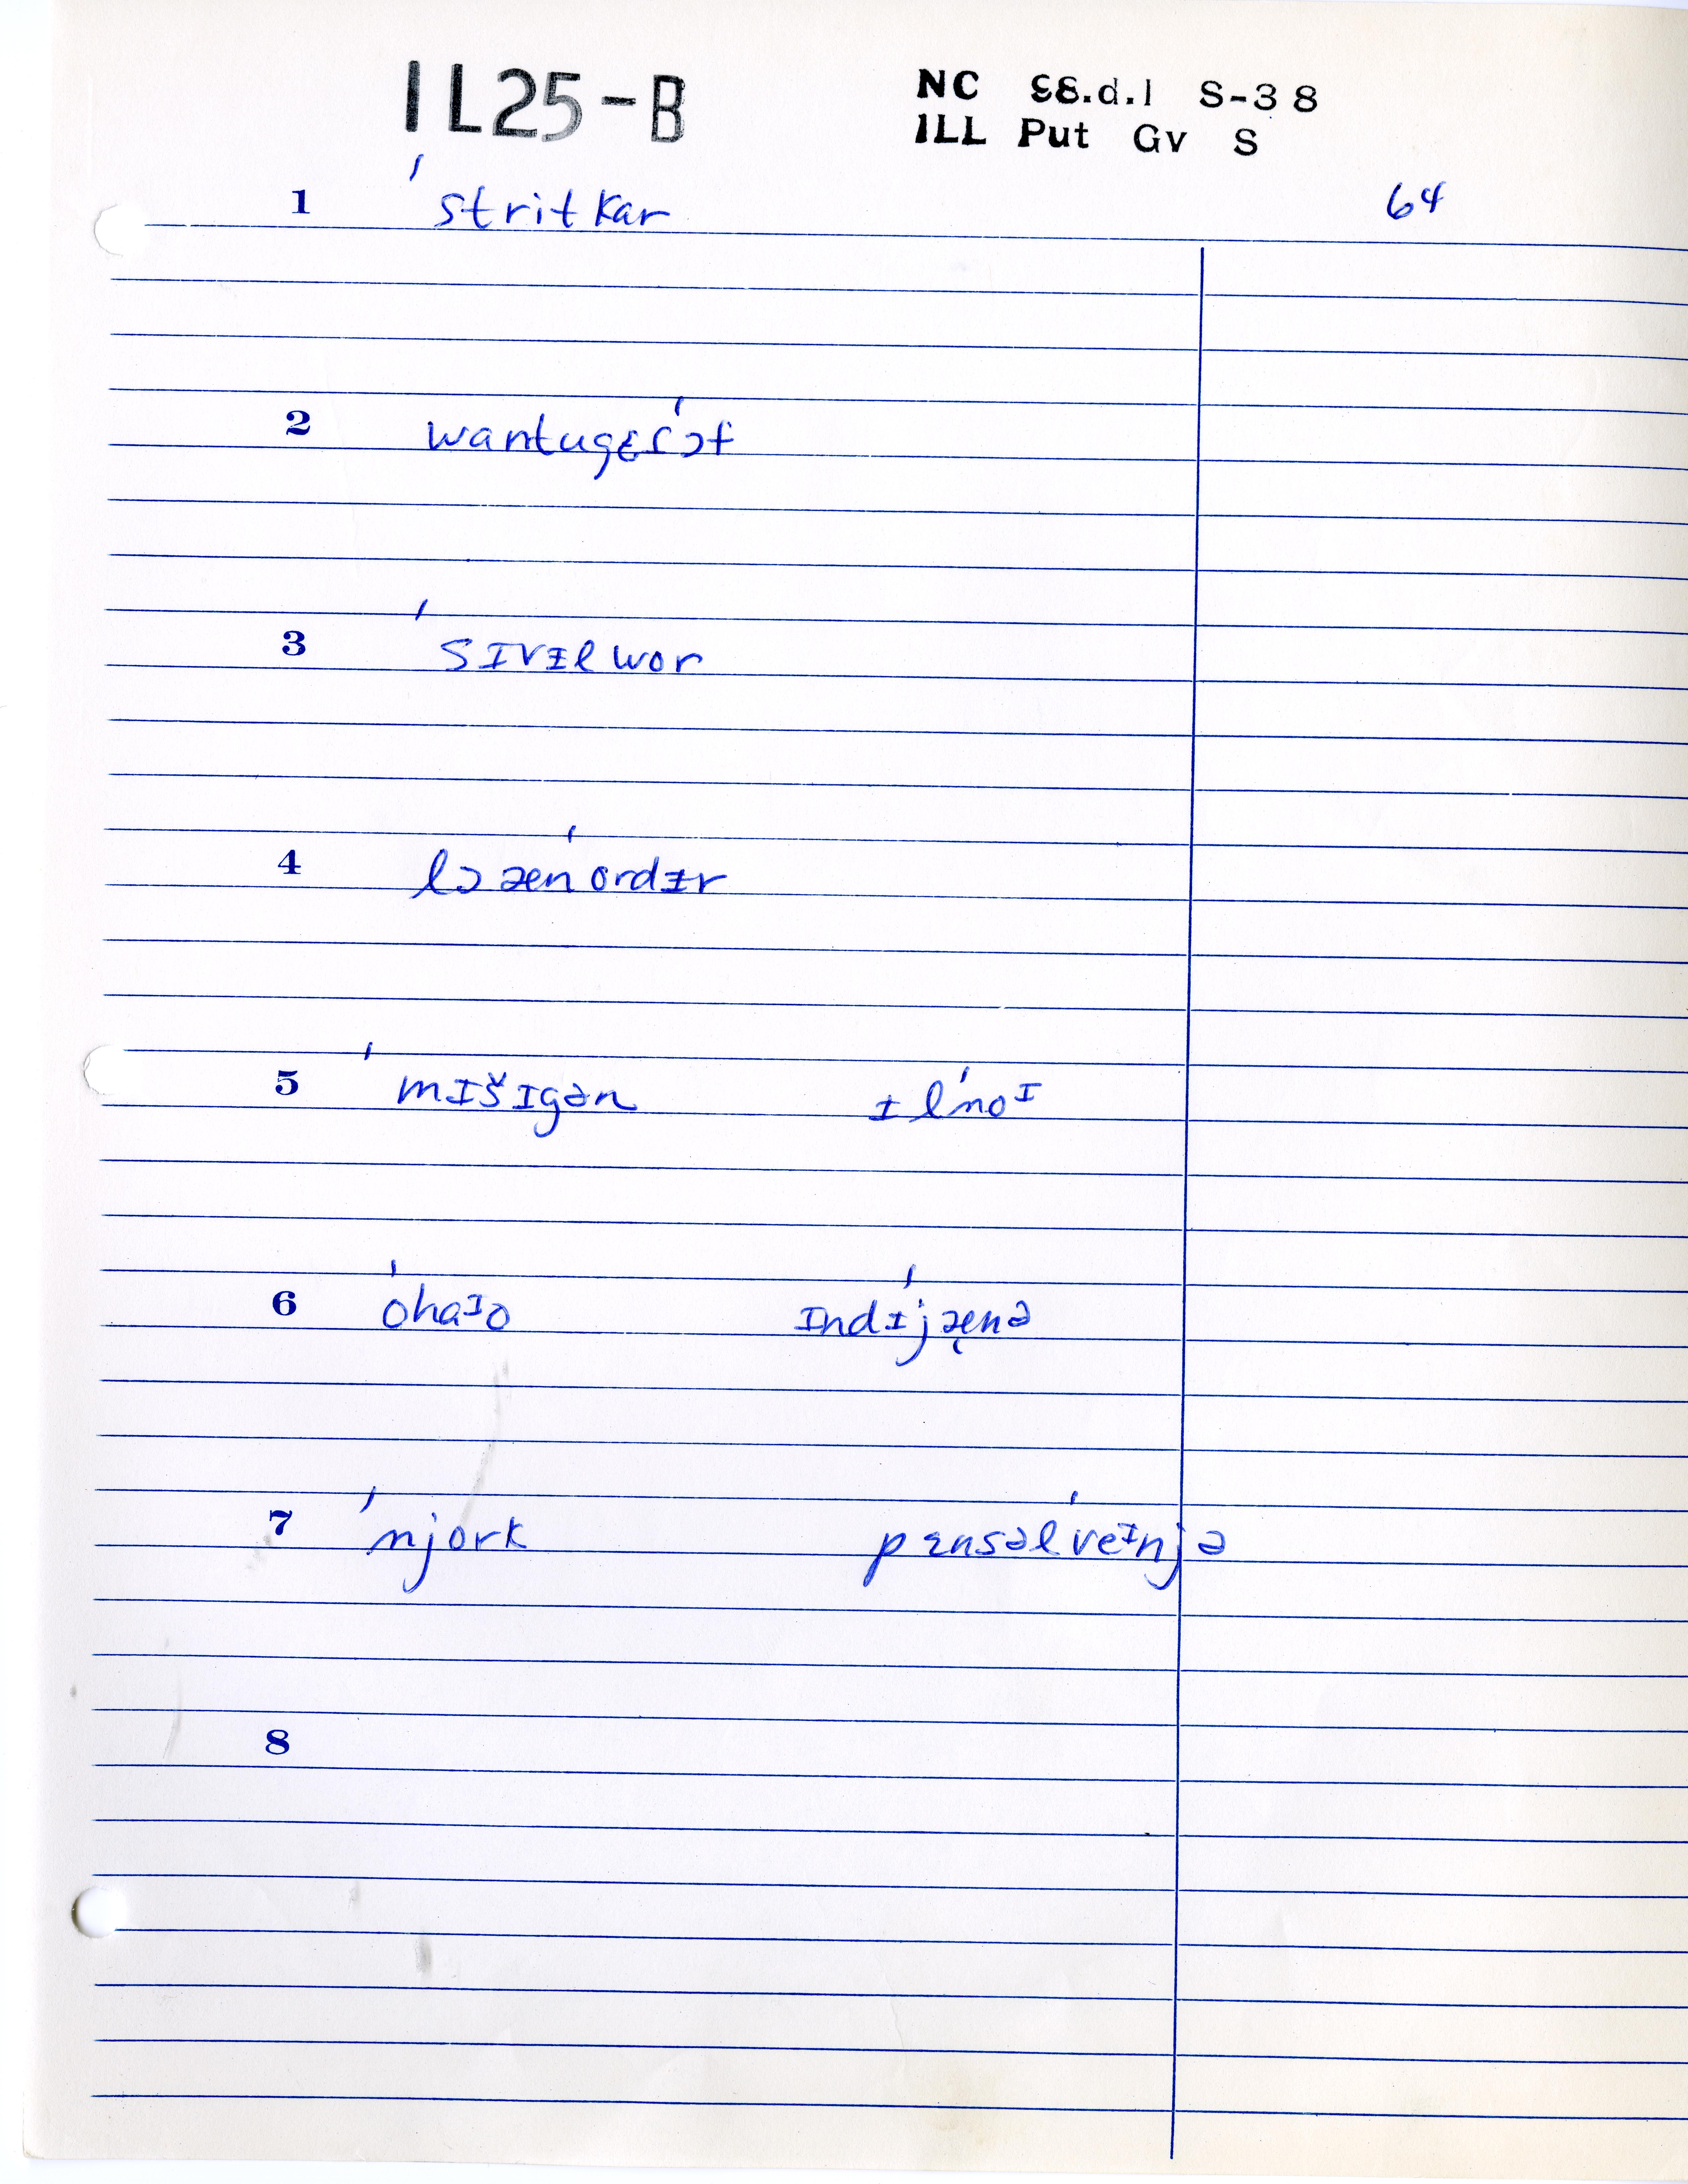 IL25-B
NC S8.d.1 S-38
ILL Put Gv S
64
1 ˈstritkar
2 wantugɛtˈɔf
3 ˈsɪvɨlwor
4 lɔ ænˈordɨr
5 ˈmɪšɪgən ɨlˈnoɪ
6 ˈohaɪo ɪndɨˈjænə
7 ˈnjork pɛnsəlˈveɪnjə
8